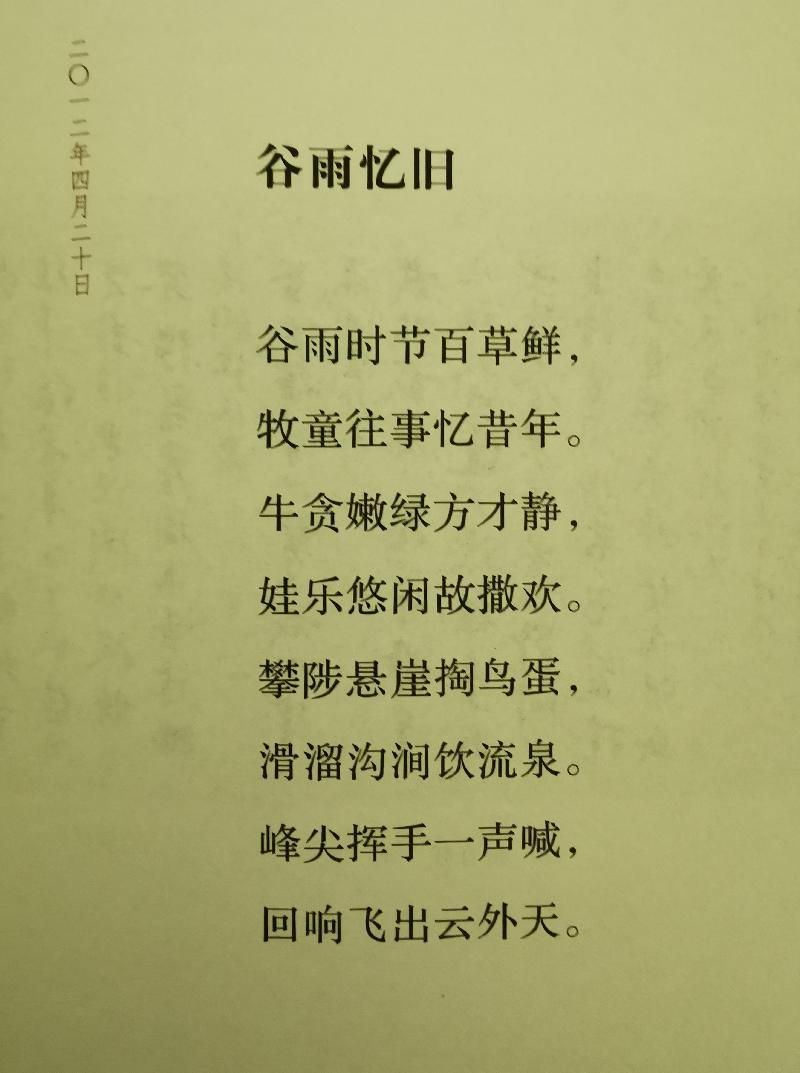 二〇一二年四月二十日
谷雨忆旧
谷雨时节百草鲜，
牧童往事忆昔年。
牛贪嫩绿方才静，
娃乐悠闲故撒欢。
攀陟悬崖掏鸟蛋，
滑溜沟涧饮流泉。
峰尖挥手一声喊，
回响飞出云外天。